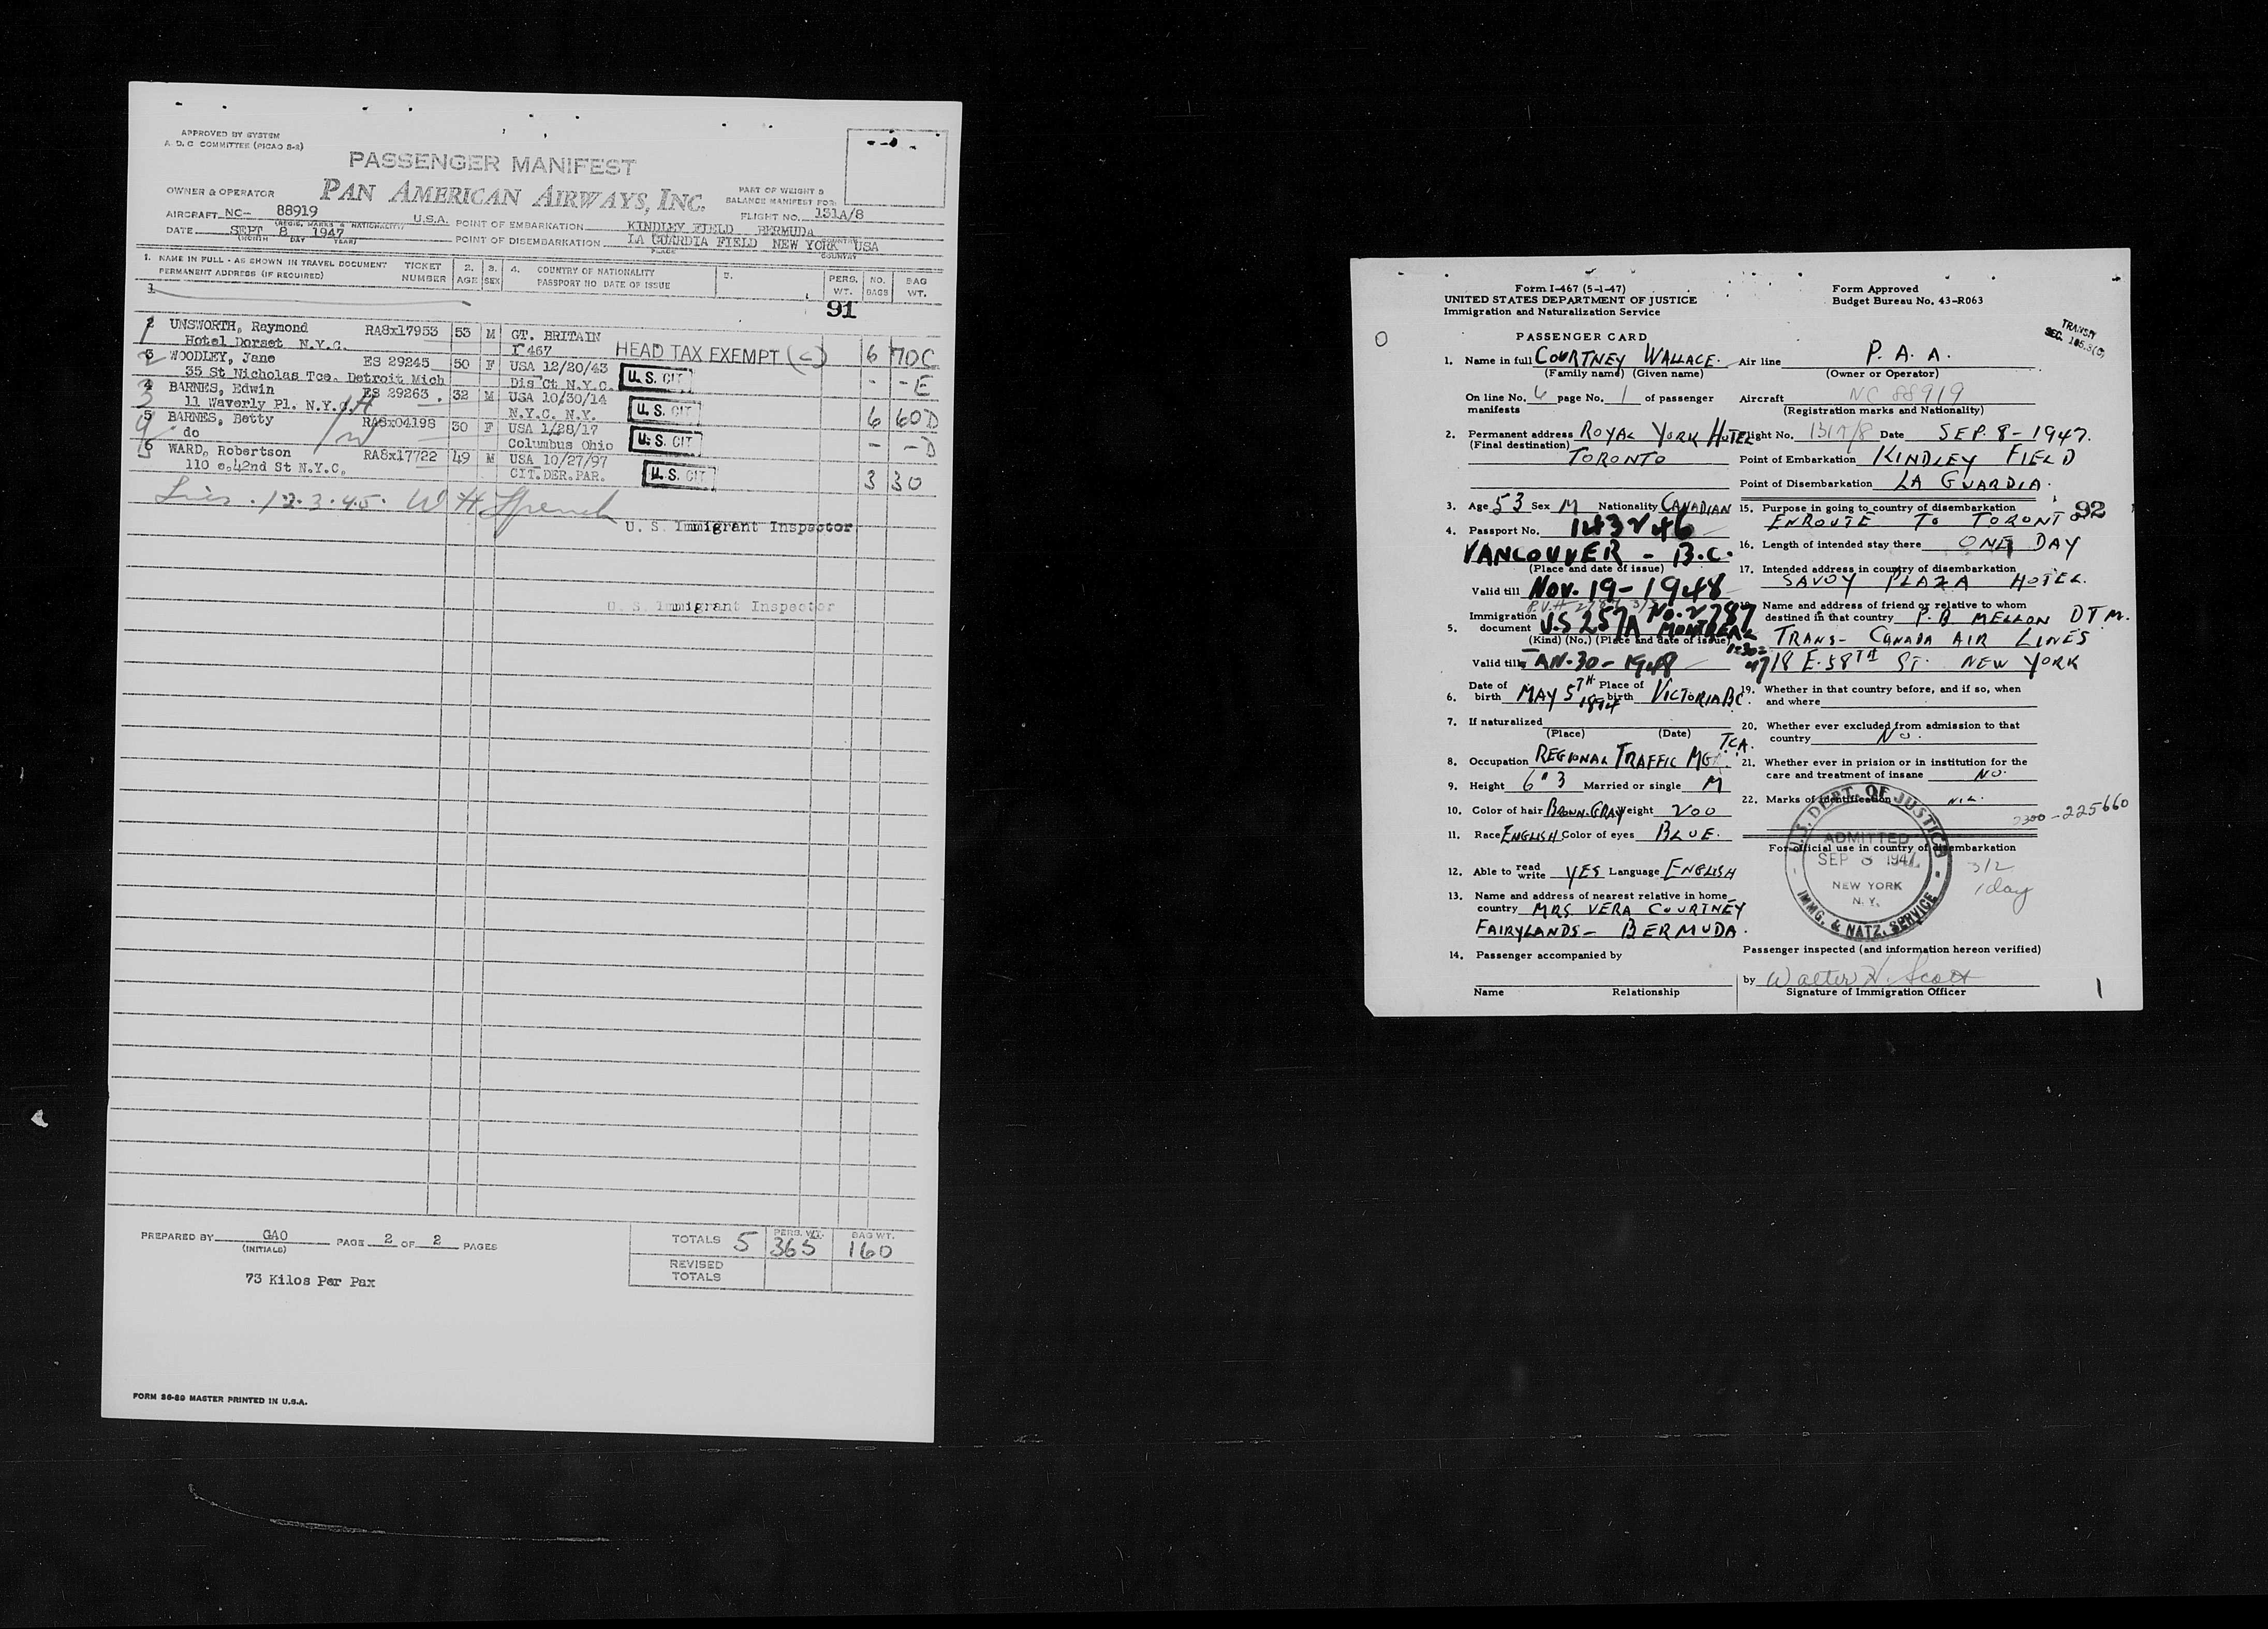 APPROVED BY SYSTEM
A. D. C COMMITTEE (PICAO 8-2)
PASSENGER MANIFEST
OWNER & OPERATOR PAN AMERICAN AIRWAYS, INC.
PART OF WEIGHT &
BALANCE MANIFEST FOR:
AIRCRAFT NC- 88919 U.S.A. FLIGHT NO. 131A/8
(REGIS. MARKS & NATIONALITY)
POINT OF EMBARKATION KINDLEY FIELD BERMUDA
DATE SEPT 8 1947
(MONTH DAY YEAR)
POINT OF DISEMBARKATION LA GUARDIA FIELD NEW YORK USA
PLACE COUNTRY
1. NAME IN FULL - AS SHOWN IN TRAVEL DOCUMENT TICKET 2. 3. 4. COUNTRY OF NATIONALITY 5. PERS. NO. BAG
PERMANENT ADDRESS (IF REQUIRED) NUMBER AGE SEX PASSPORT NO. DATE OF ISSUE WT. BAGS WT.
1
91
2 UNSWORTH, Raymond RA8x17953 53 M GT. BRITAIN
Hotel Dorset N.Y.C. I 467 HEAD TAX EXEMPT (C) 6 70C
3 WOODLEY, Jane ES 29245 50 F USA 12/20/43
35 St Nicholas Tce. Detroit Mich Dis Ct N.Y.C. U. S. CIT - -E
4 BARNES, Edwin ES 29263 32 M USA 10/30/14
11 Waverly Pl. N.Y.C. H N.Y.C. N.Y. U. S. CIT 6 60D
5 BARNES, Betty RA8x04198 30 F USA 1/28/17
do W Columbus Ohio U. S. CIT - -D
6 WARD, Robertson RA8x17722 49 M USA 10/27/97
110 e.42nd St N.Y.C. CIT.DER.PAR. U. S. CIT 3 30
1.2.3.4.5.
U. S. Immigrant Inspector
U. S. Immigrant Inspector
PREPARED BY GAO PAGE 2 OF 2 PAGES
(INITIALS)
TOTALS 5 PERS. WT. 365 BAG WT. 160
REVISED
TOTALS
73 Kilos Per Pax
FORM 36-89 MASTER PRINTED IN U.S.A.
Form I-467 (5-1-47)
UNITED STATES DEPARTMENT OF JUSTICE
Immigration and Naturalization Service
Form Approved
Budget Bureau No. 43-R063
TRANSIT
SEC. 105.3(C)
PASSENGER CARD
1. Name in full COURTNEY WALLACE.
(Family name) (Given name)
On line No. 6 page No. 1 of passenger
manifests
2. Permanent address ROYAL YORK HOTEL
(Final destination) TORONTO
3. Age 53 Sex M Nationality CANADIAN
4. Passport No. 143246
VANCOUVER - B.C.
(Place and date of issue)
Valid till NOV. 19-1948
Immigration
5. document U.S 257A No. 2787 MONTREAL
(Kind) (No.) (Place and date of issue)
Valid till JAN-30-1948
6. Date of birth MAY 5TH 1894 Place of birth VICTORIA BC
7. If naturalized
(Place) (Date)
8. Occupation REGIONAL TRAFFIC MGR. TCA.
9. Height 6" 3 Married or single M
10. Color of hair BROWN-GRAY Weight 200
11. Race ENGLISH Color of eyes BLUE.
12. Able to read write YES Language ENGLISH
13. Name and address of nearest relative in home
country MRS VERA COURTNEY
FAIRYLANDS - BERMUDA.
14. Passenger accompanied by
Name Relationship
Air line P. A. A.
(Owner or Operator)
Aircraft NC 88919
(Registration marks and Nationality)
Flight No. 131A/8 Date SEP. 8-1947.
Point of Embarkation KINDLEY FIELD
Point of Disembarkation LA GUARDIA.
15. Purpose in going to country of disembarkation 92
ENROUTE TO TORONTO
16. Length of intended stay there ONE DAY
17. Intended address in country of disembarkation
SAVOY PLAZA HOTEL.
18. Name and address of friend or relative to whom
destined in that country P.B MELLON DTM.
TRANS-CANADA AIR LINES
18 E. 58TH ST. NEW YORK
19. Whether in that country before, and if so, when
and where
20. Whether ever excluded from admission to that
country No.
21. Whether ever in prision or in institution for the
care and treatment of insane NO.
22. Marks of identification NIL.
2300-225660
For official use in country of disembarkation
U.S. DEPT. OF JUSTICE
ADMITTED
SEP 8 1947
NEW YORK
N. Y.
IMMG. & NATZ. SERVICE
3/2
1 day
Passenger inspected (and information hereon verified)
by Walter H. Scott
Signature of Immigration Officer
1